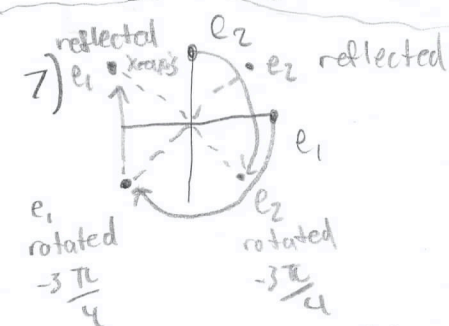 7)
reflected
x-axis
e₁
e₂
e₂ reflected
e₁
e₁
rotated
-3π/4
e₂
rotated
-3π/4